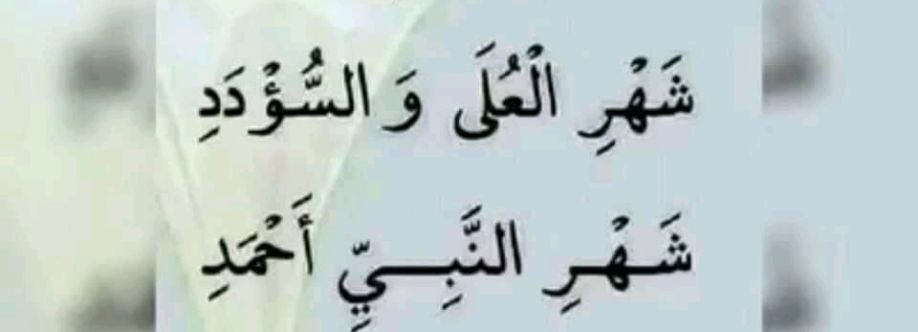 شَهْرِ الْعُلَى وَ السُّؤْدَدِ
شَهْرِ النَّبِيِّ أَحْمَدِ